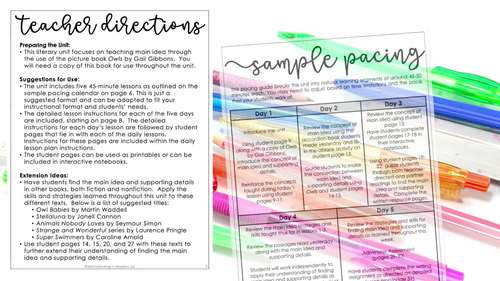 teacher directions
Preparing the Unit:
• This literary unit focuses on teaching main idea through
the use of the picture book Owls by Gail Gibbons. You
will need a copy of this book for use throughout the unit.
Suggestions for Use:
• The unit includes five 45-minute lessons as outlined on the
sample pacing calendar on page 6. This is just a
suggested format and can be adapted to fit your
instructional format and students' needs.
• The detailed lesson instructions for each of the five days
are included, starting on page 8. The detailed
instructions for each day's lesson are followed by student
pages that tie in with each of the daily lessons.
Instructions for these pages are included within the daily
lesson plan instructions.
• The student pages can be used as printables or can be
included in interactive notebooks.
Extension Ideas:
• Have students find the main idea and supporting details
in other books, both fiction and nonfiction. Apply the
skills and strategies learned throughout this unit to these
different texts. Below is a list of suggested titles:
• Owl Babies by Martin Waddell
• Stellaluna by Janell Cannon
• Animals Nobody Loves by Seymour Simon
• Strange and Wonderful series by Laurence Pringle
• Super Swimmers by Caroline Arnold
• Use student pages 14, 15, 20, and 27 with these texts to
further extend their understanding of finding the main
idea and supporting details.
sample pacing
This pacing guide breaks this unit into natural learning segments of around 45-50
minutes each. You may need to adjust based on time limitations and the pace
that your students work at.
Day 1
Introduce the unit
Using student page 9
along with a copy of Owls
by Gail Gibbons,
introduce the concept of
main idea and supporting
details.
Reinforce the concept
taught during today's
lesson using student
pages 9-11.
Day 2
Review the concept of
main idea using the
accordion book students
made yesterday and
the activity on
student page 13.
Guide students to make
the connection between
main idea and
supporting details using
Owls and student pages
14-15.
Day 3
Review the concept of
main idea using student
page
Have students complete
student pages 17-18 in
their interactive
notebooks.
Using student pages 19-
22, guide students
through both teacher
directed and partner
readings to find the main
idea and supporting
details. Complete the
written response pages.
Day 4
Review the main idea strategies and
skills taught thus far in lessons 1-3.
Reread the passages read yesterday
along with the main idea and
supporting details.
Students will work independently to
apply their understanding of finding
Review the strategies and skills for
finding main idea and supporting
details as learned throughout the
week.
pages 29-31
Have students complete the writing